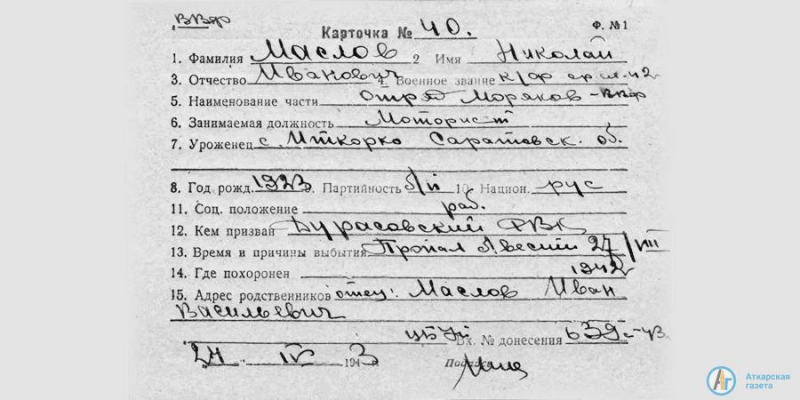 ВВф
Карточка № 40. Ф. №1
1. Фамилия Маслов 2 Имя Николай
3. Отчество Иванович 4. Военное звание к/ф
5. Наименование части отряд Моряков - ВВф
6. Занимаемая должность Моторист
7. Уроженец с. Иткорко Саратовск. об.
8. Год рожд. 1923 9. Партийность б/п 10. Национ. рус
11. Соц. положение раб.
12. Кем призван Бурасовский РВК
13. Время и причины выбытия Пропал б/вести 27/VIII
1942
14. Где похоронен
15. Адрес родственников отец: Маслов Иван
Васильевич
Вх. № донесения 639
24 IV 1943 г. Подпись
Аткарская
газета